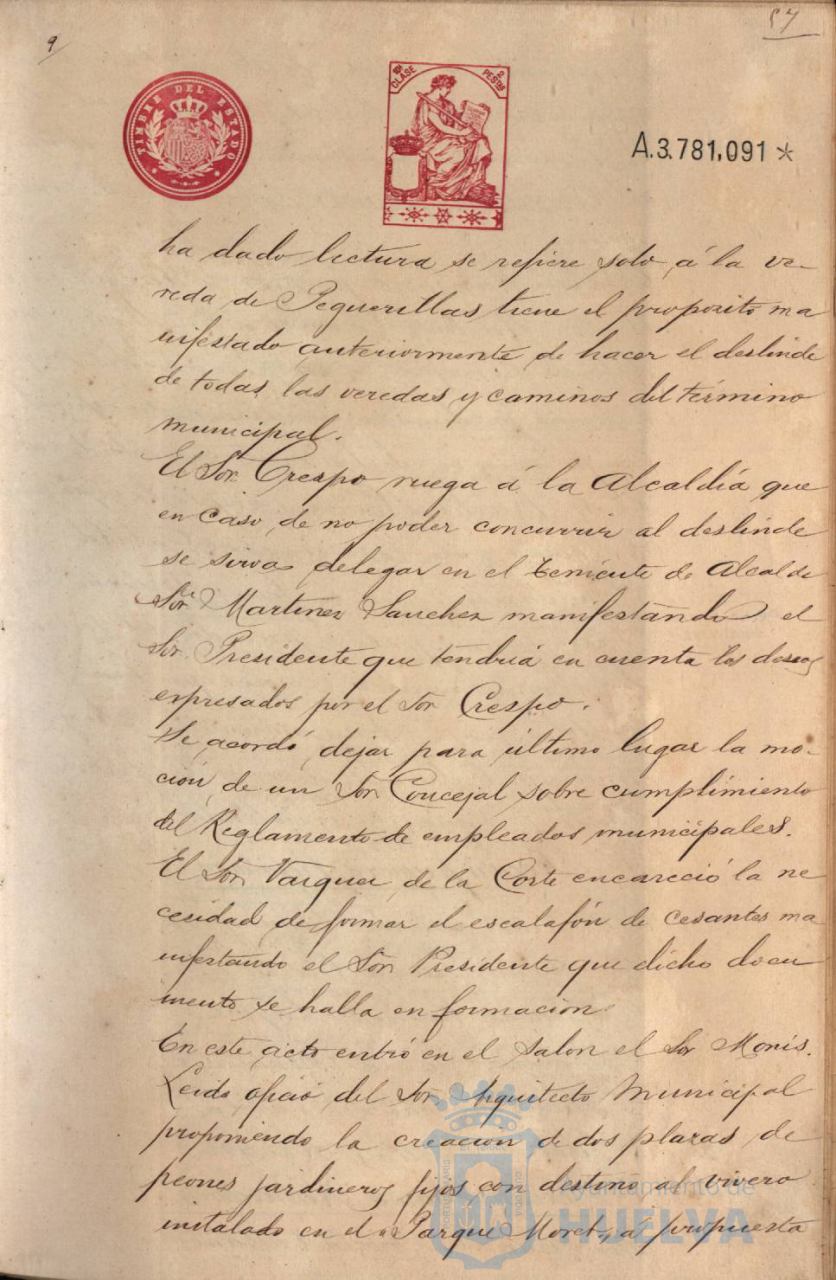 9
57
TIMBRE DEL ESTADO
10ª CLASE
2 PESETAS
A.3.781,091 *
ha dado lectura se refiere solo, á la ve-
reda de Peguerillas tiene el proposito ma
nifestado anteriormente de hacer el deslinde
de todas las veredas y caminos del término
municipal.
El Sor Crespo ruega á la Alcaldía que
en caso de no poder concurrir al deslinde
se sirva delegar en el teniente de Alcalde
Sor Martinez Sanchez manifestando el
Sor Presidente que tendria en cuenta los deseos
expresados por el Sor Crespo.
Se acordó dejar para último lugar la mo-
ción de un Sor Concejal sobre cumplimiento
del Reglamento de empleados municipales.
El Sor Vazquez de la Corte encareció la ne
cesidad de formar el escalafón de cesantes ma
nifestando el Sor Presidente que dicho docu
mento se halla en formacion.
En este acto entró en el salon el Sor Monís.
Leido oficio del Sor Arquitecto Municipal
proponiendo la creacion de dos plazas de
peones jardineros fijos con destino al vivero
instalado en el Parque Moret, á propuesta
Ayuntamiento de
HUELVA